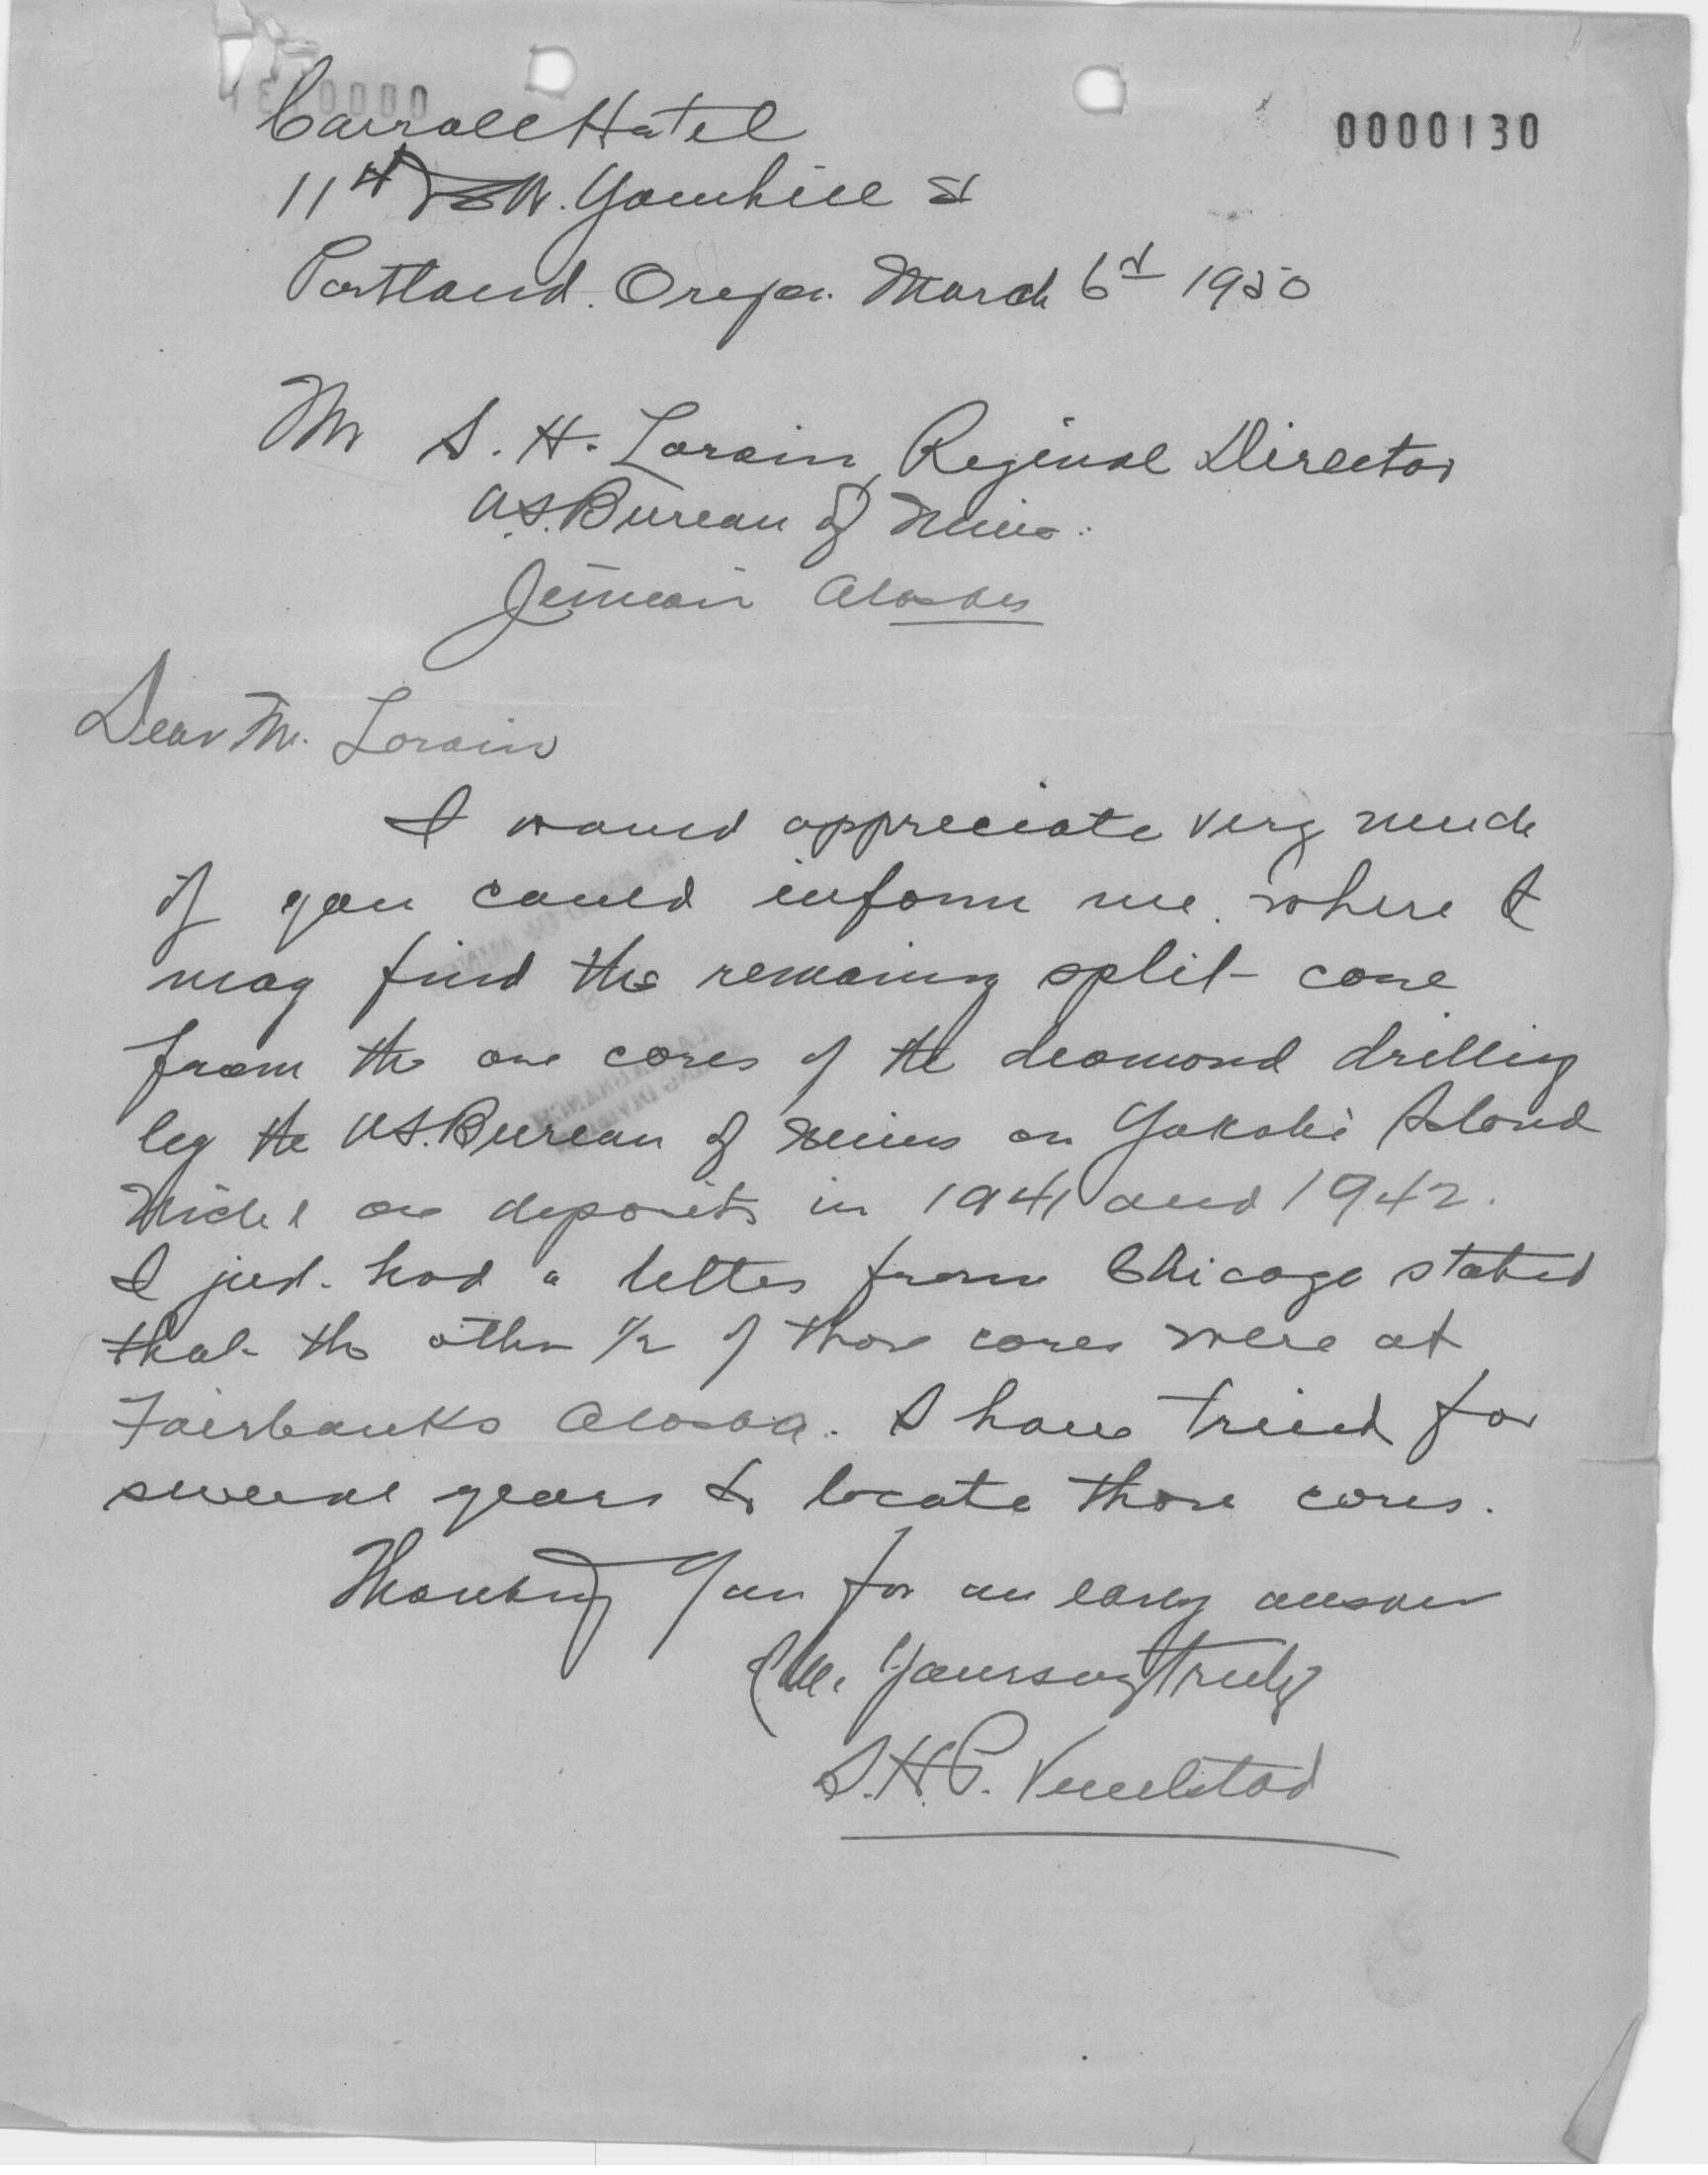 0000130
Carroll Hotel
11th S.W. Yamhill St
Portland. Oregon. March 6d 1950
Mr S. H. Lorain, Reginal Director
U.S. Bureau of Mines.
Juneau Alaska
Dear Mr. Lorain
I would appreciate very much
if you could inform me where I
may find the remaing split core
from the ore cores of the deomond drilling
by the U.S. Bureau of Mines on Yakobi Island
Nickel ore deposits in 1941 and 1942.
I just had a letter from Chicago stated
that the other 1/2 of those cores were at
Fairbanks Alaska. I have tried for
several years to locate those cores.
Thanking You for an early answer
Yours Truly
S.H.P. Vevelstad